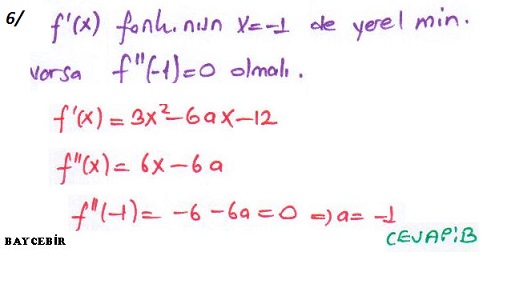 6/ f'(x) fonk.nun x=-1 de yerel min.
varsa f''(-1)=0 olmalı.
f'(x)=3x²-6ax-12
f''(x)=6x-6a
f''(-1)=-6-6a=0 ⇒ a=-1
CEVAP:B
BAYCEBİR